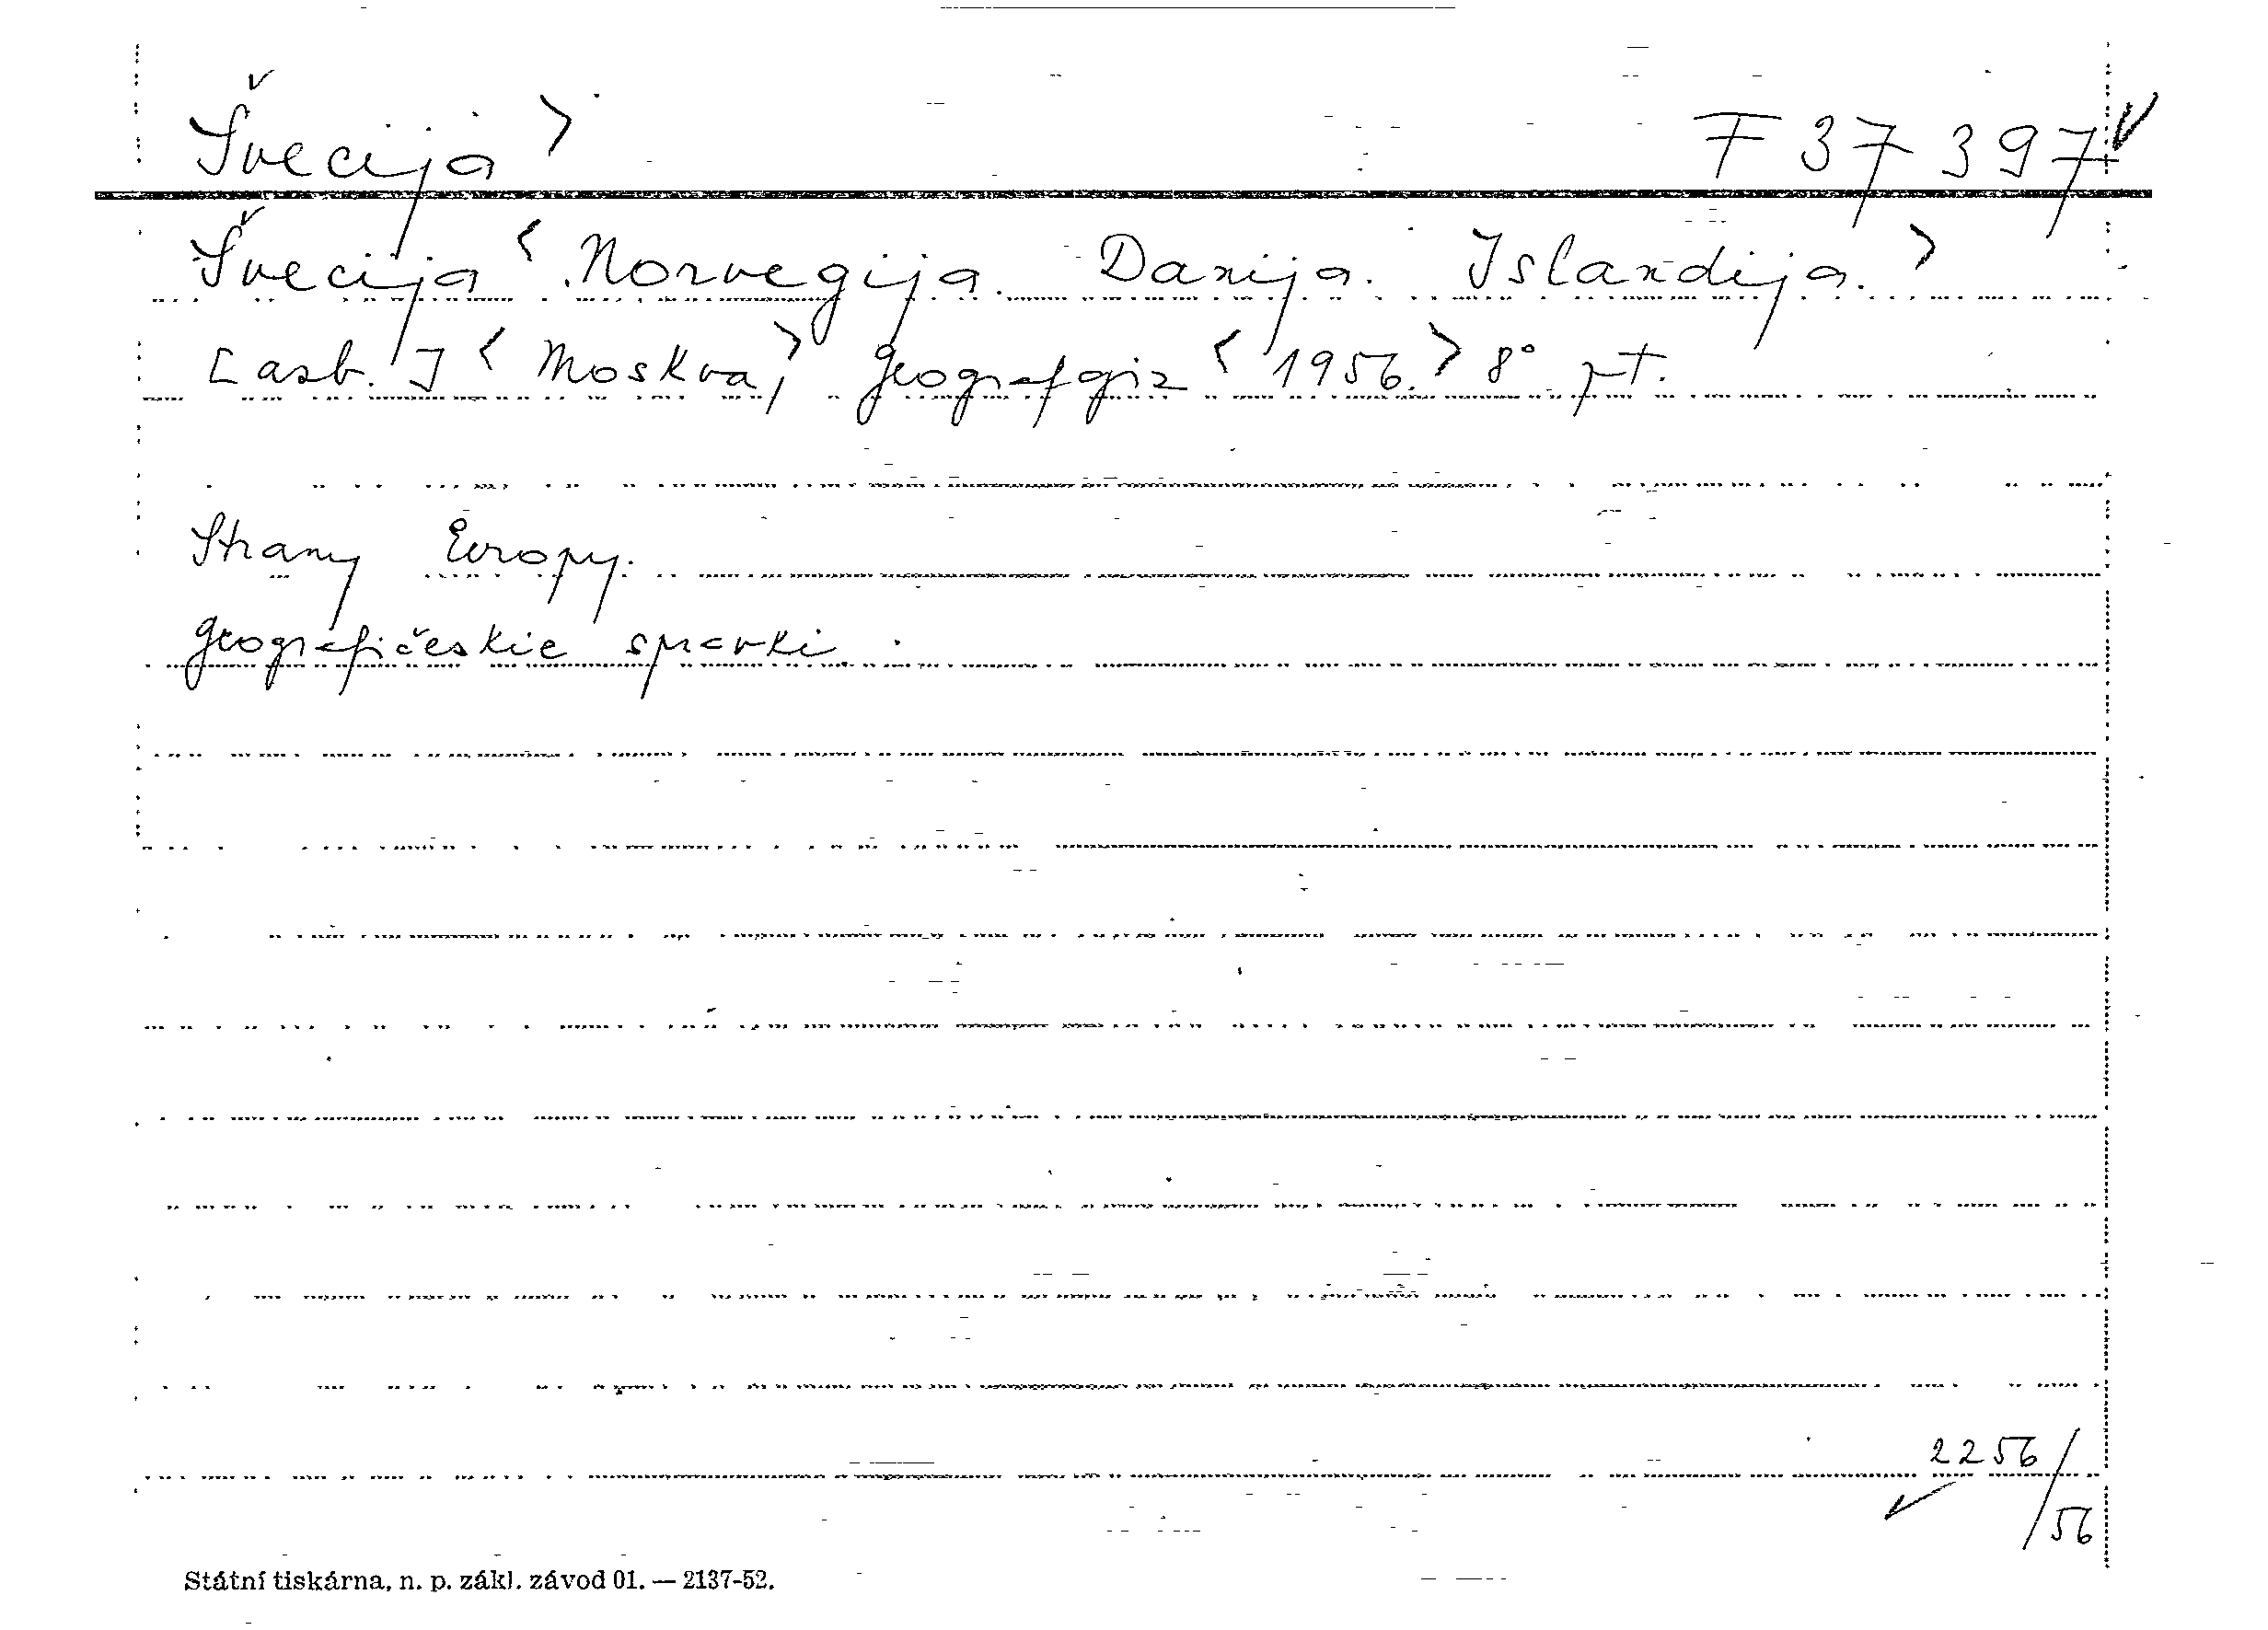 Švecija > F 37 397
Švecija < Norvegija. Danija. Islandija. >
[azb.] < Moskva, > Geografgiz < 1956. > 8° pt.
Strany Evropy.
Geografičeskie spravki.
2256/56
Státní tiskárna, n. p. zákl. závod 01. — 2137-52.